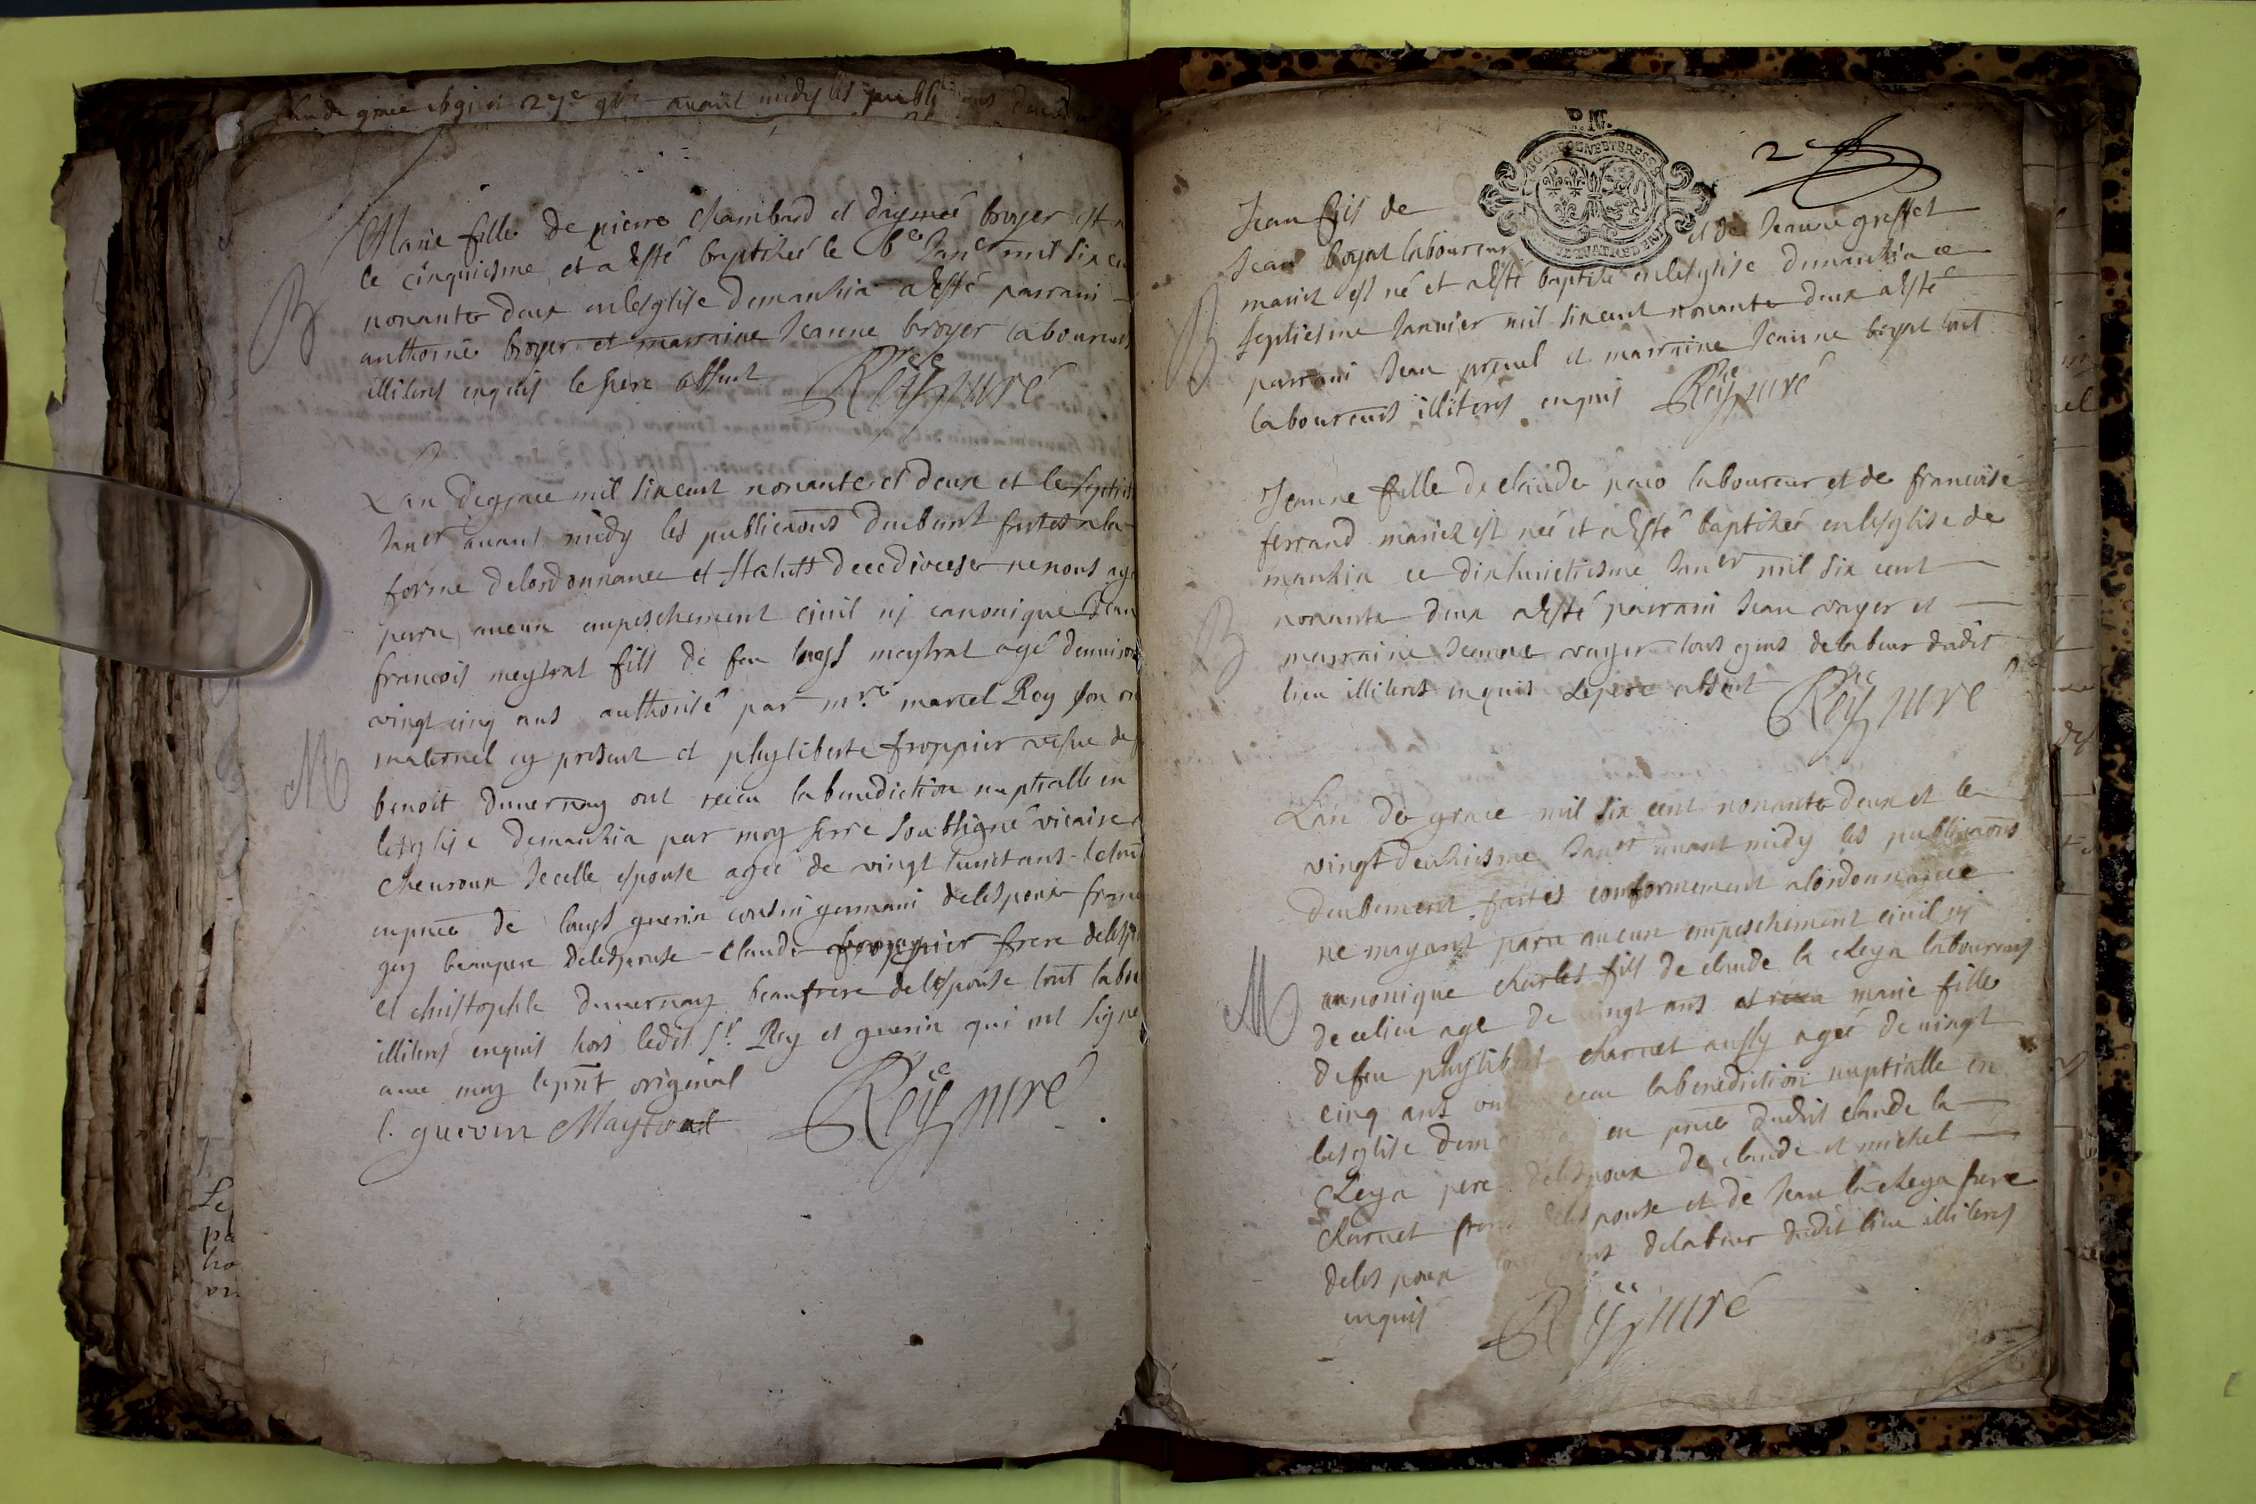 avant midy les publications
B
Marie fille de pierre Chambard et daymeé broyer est n
le cinquiesme et a esté baptiseé le 6e Janr mil six ce
nonante deux en lesglise demanzia a esté parrain
anthoine broyer et marraine Jeanne broyer laboureurs
illiteres enquis le pere absent Rey curé
M
Lan de grace mil six cent nonante et deux et le septie
Janer avant midy les publicaons deubant faites a la
forme delordonnance et statuts decediocese ne nous aya
paru aucun empeschement civil ny canonique Jean
francois meytrat fils de feu louys meytrat agé denviron
vingt cinq ans authorisé par mre marcel Rey son on
maternel cy present et phylibert froppier vefve de
benoit duvernay ont receu la benediction nuptialle en
lesglise demanzia par moy soubsigné vicaire
Chevroux Jcelle espouse ageé de vingt huict ans
en pnce de louys guerin cousin germain delespoux
guy beaupere delespouse - Claude froppier frere delesp
et christophle duvernay beaufrere delespouse tout labo
illiteres enquis hors ledit Sr Rey et guerin qui ont signé
avec moy lepnt original
l. guerin Maytrat Rey curé
P.N.
2
B
Jean fils de
Jean boyat laboureur et de Jeanne greffet
mariez est né et a esté baptisé en lesglise demanzia ce
septiesme Janvier mil six cent nonante deux a esté
parrain Jean et marraine Jeanne boyat tout
laboureurs illiteres enquis Rey curé
B
Jeanne fille de claude laboureur et de francoise
ferrand mariez est neé et a esté baptiseé en lesglise de
manzia ce dixhuictiesme Janer mil six cent
nonante deux a esté parrain Jean voyer et
marraine Jeanne voyer tous gens delabeur dudit
lieu illiteres enquis le pere absent Rey curé
M
Lan de grace mil six cent nonante deux et le
vingtdeuxiesme Janer avant midy les publicaons
deubement faites conformement a lordonnance
ne mayant paru aucun empeschement civil ny
canonique charles fils de claude la Cheya laboureurs
decelieu agé de vingt ans et marie fille
defeu phylibert charnet aussy ageé de vingt
cinq ans ont receu la benediction nuptialle en
lesglise dem en pnce dudit claude la
Cheya pere delespoux de claude et michel
charnet frere delespouse et de Jean la cheya frere
delespoux gens delabeur dudit lieu illiteres
enquis Rey curé